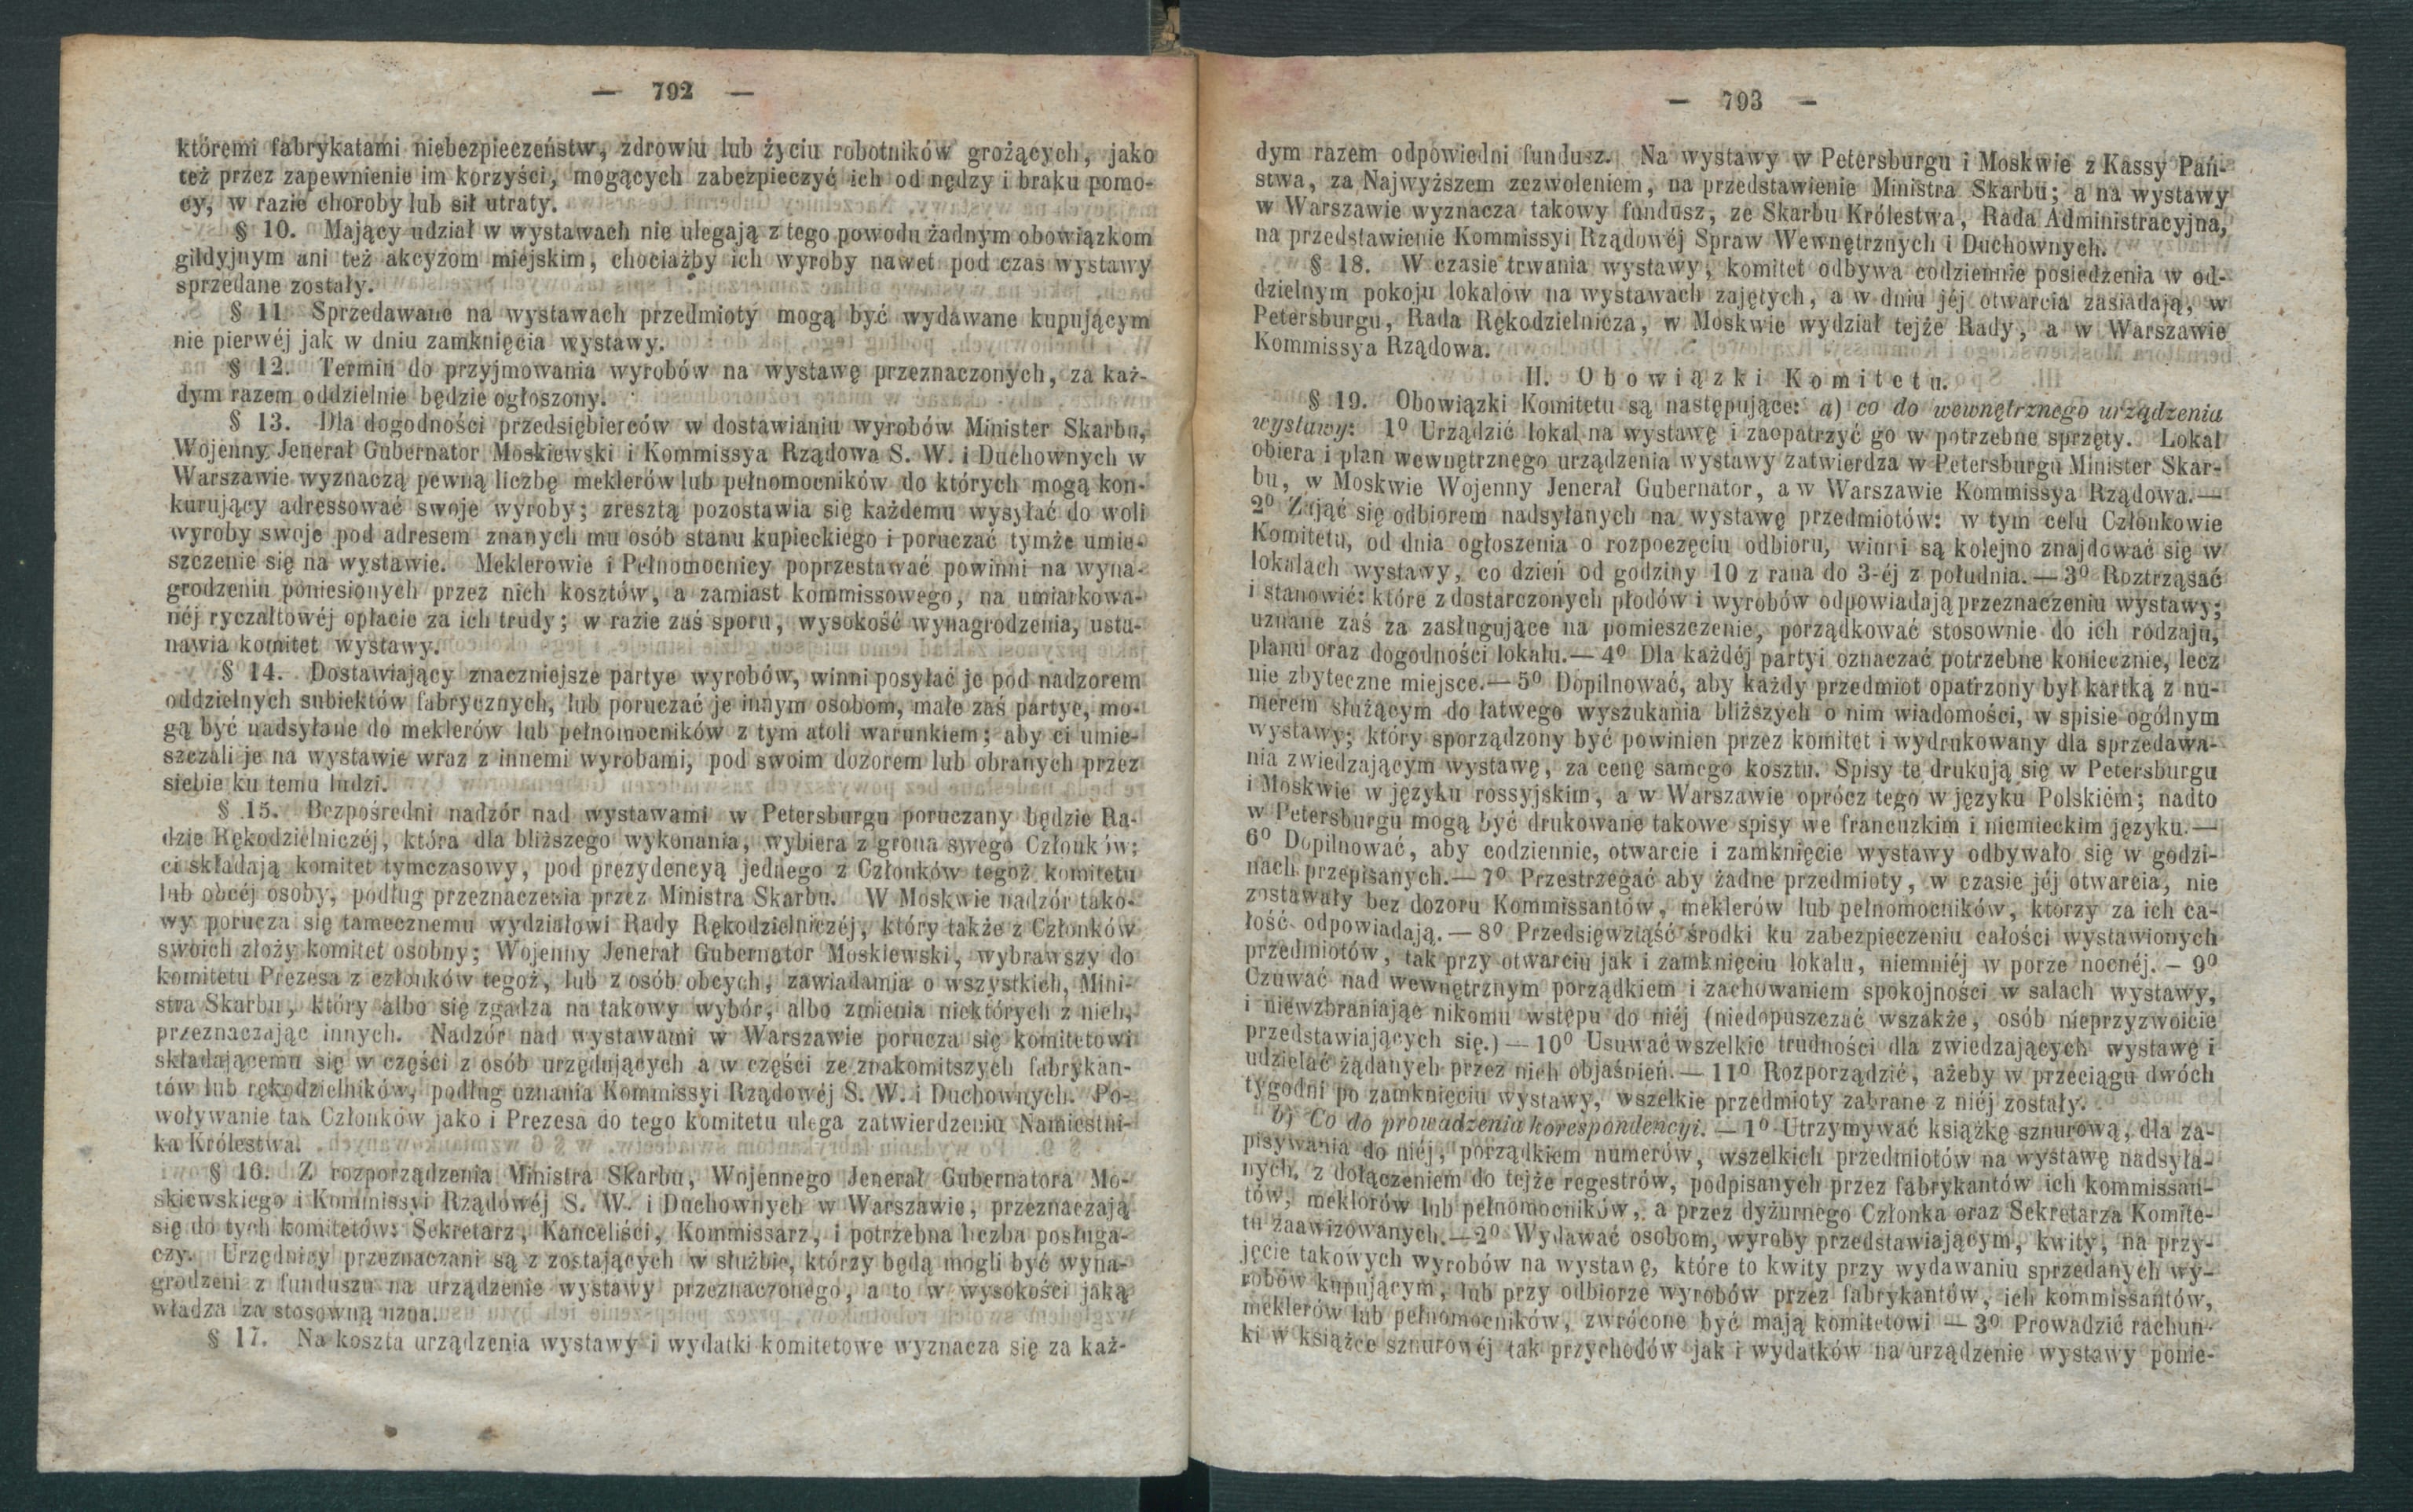 — 792 —
któremi fabrykatami niebezpieczeństw, zdrowiu lub życiu robotników grożących, jako
też przez zapewnienie im korzyści, mogących zabezpieczyć ich od nędzy i braku pomo-
cy, w razie choroby lub sił utraty.
§ 10. Mający udział w wystawach nie ulegają z tego powodu żadnym obowiązkom
gildyjnym ani też akcyzom miejskim, chociażby ich wyroby nawet pod czas wystawy
sprzedane zostały.
§ 11. Sprzedawane na wystawach przedmioty mogą być wydawane kupującym
nie pierwéj jak w dniu zamknięcia wystawy.
§ 12. Termin do przyjmowania wyrobów na wystawę przeznaczonych, za każ-
dym razem oddzielnie będzie ogłoszony.
§ 13. Dla dogodności przedsiębierców w dostawianiu wyrobów Minister Skarbu,
Wojenny Jenerał Gubernator Moskiewski i Kommissya Rządowa S. W. i Duchownych w
Warszawie wyznaczą pewną liczbę meklerów lub pełnomocników do których mogą kon-
kurujący adressować swoje wyroby; zresztą pozostawia się każdemu wysyłać do woli
wyroby swoje pod adresem znanych mu osób stanu kupieckiego i poruczać tymże umie-
szczenie się na wystawie. Meklerowie i Pełnomocnicy poprzestawać powinni na wyna-
grodzeniu poniesionych przez nich kosztów, a zamiast kommissowego, na umiarkowa-
néj ryczałtowéj opłacie za ich trudy; w razie zaś sporu, wysokość wynagrodzenia, usta-
nawia komitet wystawy.
§ 14. Dostawiający znaczniejsze partye wyrobów, winni posyłać je pod nadzorem
oddzielnych subiektów fabrycznych, lub poruczać je innym osobom, małe zaś partye, mo-
gą być nadsyłane do meklerów lub pełnomocników z tym atoli warunkiem; aby ci umie-
szczali je na wystawie wraz z innemi wyrobami, pod swoim dozorem lub obranych przez
siebie ku temu ludzi.
§ 15. Bezpośredni nadzór nad wystawami w Petersburgu poruczany będzie Ra-
dzie Rękodzielniczéj, która dla bliższego wykonania, wybiera z grona swego Członków;
ci składają komitet tymczasowy, pod prezydencyą jednego z Członków tegoż komitetu
lub obcéj osoby, podług przeznaczenia przez Ministra Skarbu. W Moskwie nadzór tako-
wy porucza się tamecznemu wydziałowi Rady Rękodzielniczéj, który także z Członków
swoich złoży komitet osobny; Wojenny Jenerał Gubernator Moskiewski, wybrawszy do
komitetu Prezesa z członków tegoż, lub z osób obcych, zawiadamia o wszystkich, Mini-
stra Skarbu, który albo się zgadza na takowy wybór, albo zmienia niektórych z nich,
przeznaczając innych. Nadzór nad wystawami w Warszawie porucza się komitetowi
składającemu się w części z osób urzędujących a w części ze znakomitszych fabrykan-
tów lub rękodzielników, podług uznania Kommissyi Rządowéj S. W. i Duchownych. Po-
woływanie tak Członków jako i Prezesa do tego komitetu ulega zatwierdzeniu Namiestni-
ka Królestwa.
§ 16. Z rozporządzenia Ministra Skarbu, Wojennego Jenerał Gubernatora Mo-
skiewskiego i Kommissyi Rządowéj S. W. i Duchownych w Warszawie, przeznaczają
się do tych komitetów: Sekretarz, Kanceliści, Kommissarz, i potrzebna liczba posługa-
czy. Urzędnicy przeznaczani są z zostających w służbie, którzy będą mogli być wyna-
grodzeni z funduszu na urządzenie wystawy przeznaczonego, a to w wysokości jaką
władza za stosowną uzna.
§ 17. Na koszta urządzenia wystawy i wydatki komitetowe wyznacza się za każ-
— 793 —
dym razem odpowiedni fundusz. Na wystawy w Petersburgu i Moskwie z Kassy Pań-
stwa, za Najwyższem zezwoleniem, na przedstawienie Ministra Skarbu; a na wystawy
w Warszawie wyznacza takowy fundusz, ze Skarbu Królestwa, Rada Administracyjna,
na przedstawienie Kommissyi Rządowéj Spraw Wewnętrznych i Duchownych.
§ 18. W czasie trwania wystawy, komitet odbywa codziennie posiedzenia w od-
dzielnym pokoju lokalów na wystawach zajętych, a w dniu jéj otwarcia zasiadają, w
Petersburgu, Rada Rękodzielnicza, w Moskwie wydział tejże Rady, a w Warszawie
Kommissya Rządowa.
II. Obowiązki Komitetu.
§ 19. Obowiązki Komitetu są następujące: a) co do wewnętrznego urządzenia
wystawy: 1⁰ Urządzić lokal na wystawę i zaopatrzyć go w potrzebne sprzęty. Lokal
obiera i plan wewnętrznego urządzenia wystawy zatwierdza w Petersburgu Minister Skar-
bu, w Moskwie Wojenny Jenerał Gubernator, a w Warszawie Kommissya Rządowa.—
2⁰ Zająć się odbiorem nadsyłanych na wystawę przedmiotów: w tym celu Członkowie
Komitetu, od dnia ogłoszenia o rozpoczęciu odbioru, winni są kolejno znajdować się w
lokalach wystawy, co dzień od godziny 10 z rana do 3-éj z południa.—3⁰ Roztrząsać
i stanowić: które z dostarczonych płodów i wyrobów odpowiadają przeznaczeniu wystawy;
uznane zaś za zasługujące na pomieszczenie, porządkować stosownie do ich rodzaju,
planu oraz dogodności lokalu.—4⁰ Dla każdéj partyi oznaczać potrzebne koniecznie, lecz
nie zbyteczne miejsce.—5⁰ Dopilnować, aby każdy przedmiot opatrzony był kartką z nu-
merem służącym do łatwego wyszukania bliższych o nim wiadomości, w spisie ogólnym
wystawy; który sporządzony być powinien przez komitet i wydrukowany dla sprzedawa-
nia zwiedzającym wystawę, za cenę samego kosztu. Spisy te drukują się w Petersburgu
i Moskwie w języku rossyjskim, a w Warszawie oprócz tego w języku Polskiém; nadto
w Petersburgu mogą być drukowane takowe spisy we francuzkim i niemieckim języku.—
6⁰ Dopilnować, aby codziennie, otwarcie i zamknięcie wystawy odbywało się w godzi-
nach przepisanych.—7⁰ Przestrzegać aby żadne przedmioty, w czasie jéj otwarcia, nie
zostawały bez dozoru Kommissantów, meklerów lub pełnomocników, którzy za ich ca-
łość odpowiadają.—8⁰ Przedsięwziąść środki ku zabezpieczeniu całości wystawionych
przedmiotów, tak przy otwarciu jak i zamknięciu lokalu, niemniéj w porze nocnéj. – 9⁰
Czuwać nad wewnętrznym porządkiem i zachowaniem spokojności w salach wystawy,
i niewzbraniając nikomu wstępu do niéj (niedopuszczać wszakże, osób nieprzyzwoicie
przedstawiających się.)—10⁰ Usuwać wszelkie trudności dla zwiedzających wystawę i
udzielać żądanych przez nich objaśnień.—11⁰ Rozporządzić, ażeby w przeciągu dwóch
tygodni po zamknięciu wystawy, wszelkie przedmioty zabrane z niéj zostały.
b) Co do prowadzenia korespondencyi. — 1⁰ Utrzymywać książkę sznurową, dla za-
pisywania do niéj, porządkiem numerów, wszelkich przedmiotów na wystawę nadsyła-
nych, z dołączeniem do tejże regestrów, podpisanych przez fabrykantów ich kommissan-
tów, meklorów lub pełnomocników, a przez dyżurnego Członka oraz Sekretarza Komite-
tu zaawizowanych.—2⁰ Wydawać osobom, wyroby przedstawiającym, kwity, na przy-
jęcie takowych wyrobów na wystawę, które to kwity przy wydawaniu sprzedanych wy-
robów kupującym, lub przy odbiorze wyrobów przez fabrykantów, ich kommissantów,
meklerów lub pełnomocników, zwrócone być mają komitetowi — 3⁰ Prowadzić rachun-
ki w książce sznurowéj tak przychodów jak i wydatków na urządzenie wystawy ponie-